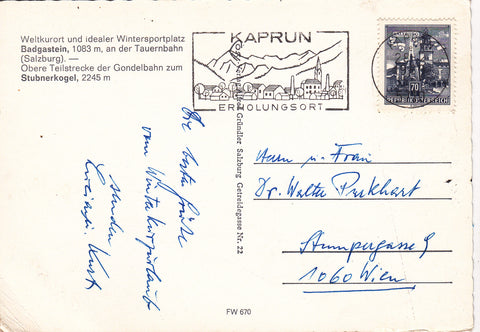 Weltkurort und idealer Wintersportplatz
Badgastein, 1083 m, an der Tauernbahn
(Salzburg). —
Obere Teilstrecke der Gondelbahn zum
Stubnerkogel, 2245 m
KAPRUN
ERHOLUNGSORT
70
REPUBLIK ÖSTERREICH
Die besten Grüße
vom Winterkurzurlaub
senden
Kurt
Gründler Salzburg Getreidegasse Nr. 22
Herrn u. Frau
Dr. Walter Purkhart
Stumpergasse 9
1060 Wien
FW 670